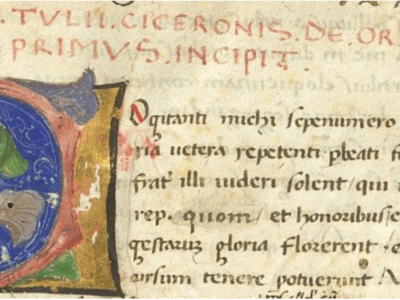 . TVLII. CICERONIS. DE. OR
PRIMVS. INCIPIT.
Ogitanti michi sepenumero
ria uetera repetenti pbeati f
frat illi uideri solent, qui i
rep. quom, et honoribus, e
gestarum gloria Florerent, e
cursum tenere potuerunt,